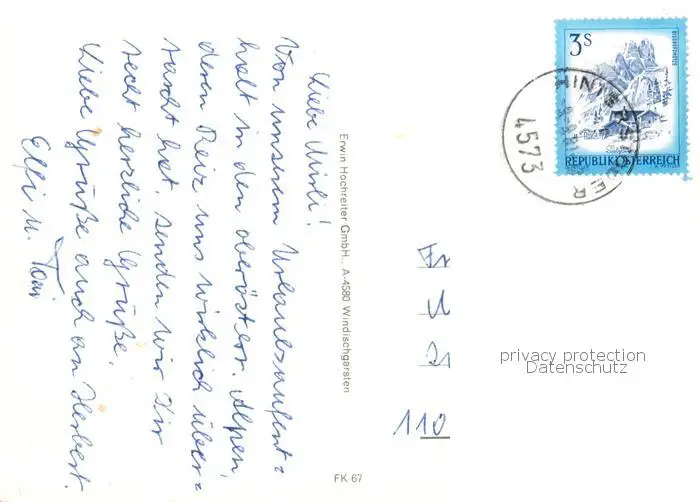 Liebe Mirli!
Von unserem Urlaubsaufent=
halt in den oberösterr. Alpen,
deren Reiz uns wirklich über=
rascht hat, senden wir Dir
recht herzliche Grüße.
Liebe Grüße auch an Herbert.
Elfi u. Toni
Erwin Hochreiter GmbH., A-4580 Windischgarsten
FK 67
3S
BISCHOFSMÜTZE
REPUBLIK ÖSTERREICH
HINTERSTODER
4573
Fr
110
privacy protection
Datenschutz